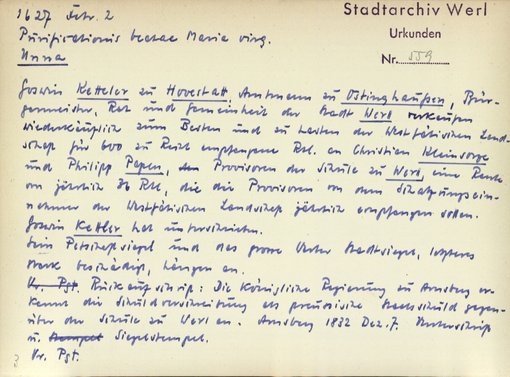 Stadtarchiv Werl
Urkunden
Nr. 559
1627 Febr. 2
Purificationis beatae Maria virg.
Unna
Goswin Ketteler zu Hovestatt, Amtmann zu Ostinghaußen, Bür-
germeister, Rat und Gemeinheit der Stadt Werl verkaufen
wiederkäuflich zum Besten und zu Lasten der Westfälischen Land-
schaft für 600 zu Recht empfangene Rtl. an Christian Kleinsorge
und Philipp Papen, den Provisoren der Schule zu Werl, eine Rente
von jährlich 36 Rtl., die die Provisoren von dem Schatzungsein-
nehmer der Westfälischen Landschaft jährlich empfangen sollen.
Goswin Kettler hat unterschrieben.
Sein Petschaftsiegel und das grosse Werler Stadtsiegel, letzteres
stark beschädigt, hängen an.
Or. Pgt. Rückaufschrift: Die Königliche Regierung zu Arnsberg er-
kennt die Schuldverschreibung als preussische Staatsschuld gegen-
über der Schule zu Werl an. Arnsberg 1832 Dez. 7. Unterschrift
u. Stempel Siegelstempel.
Or. Pgt.